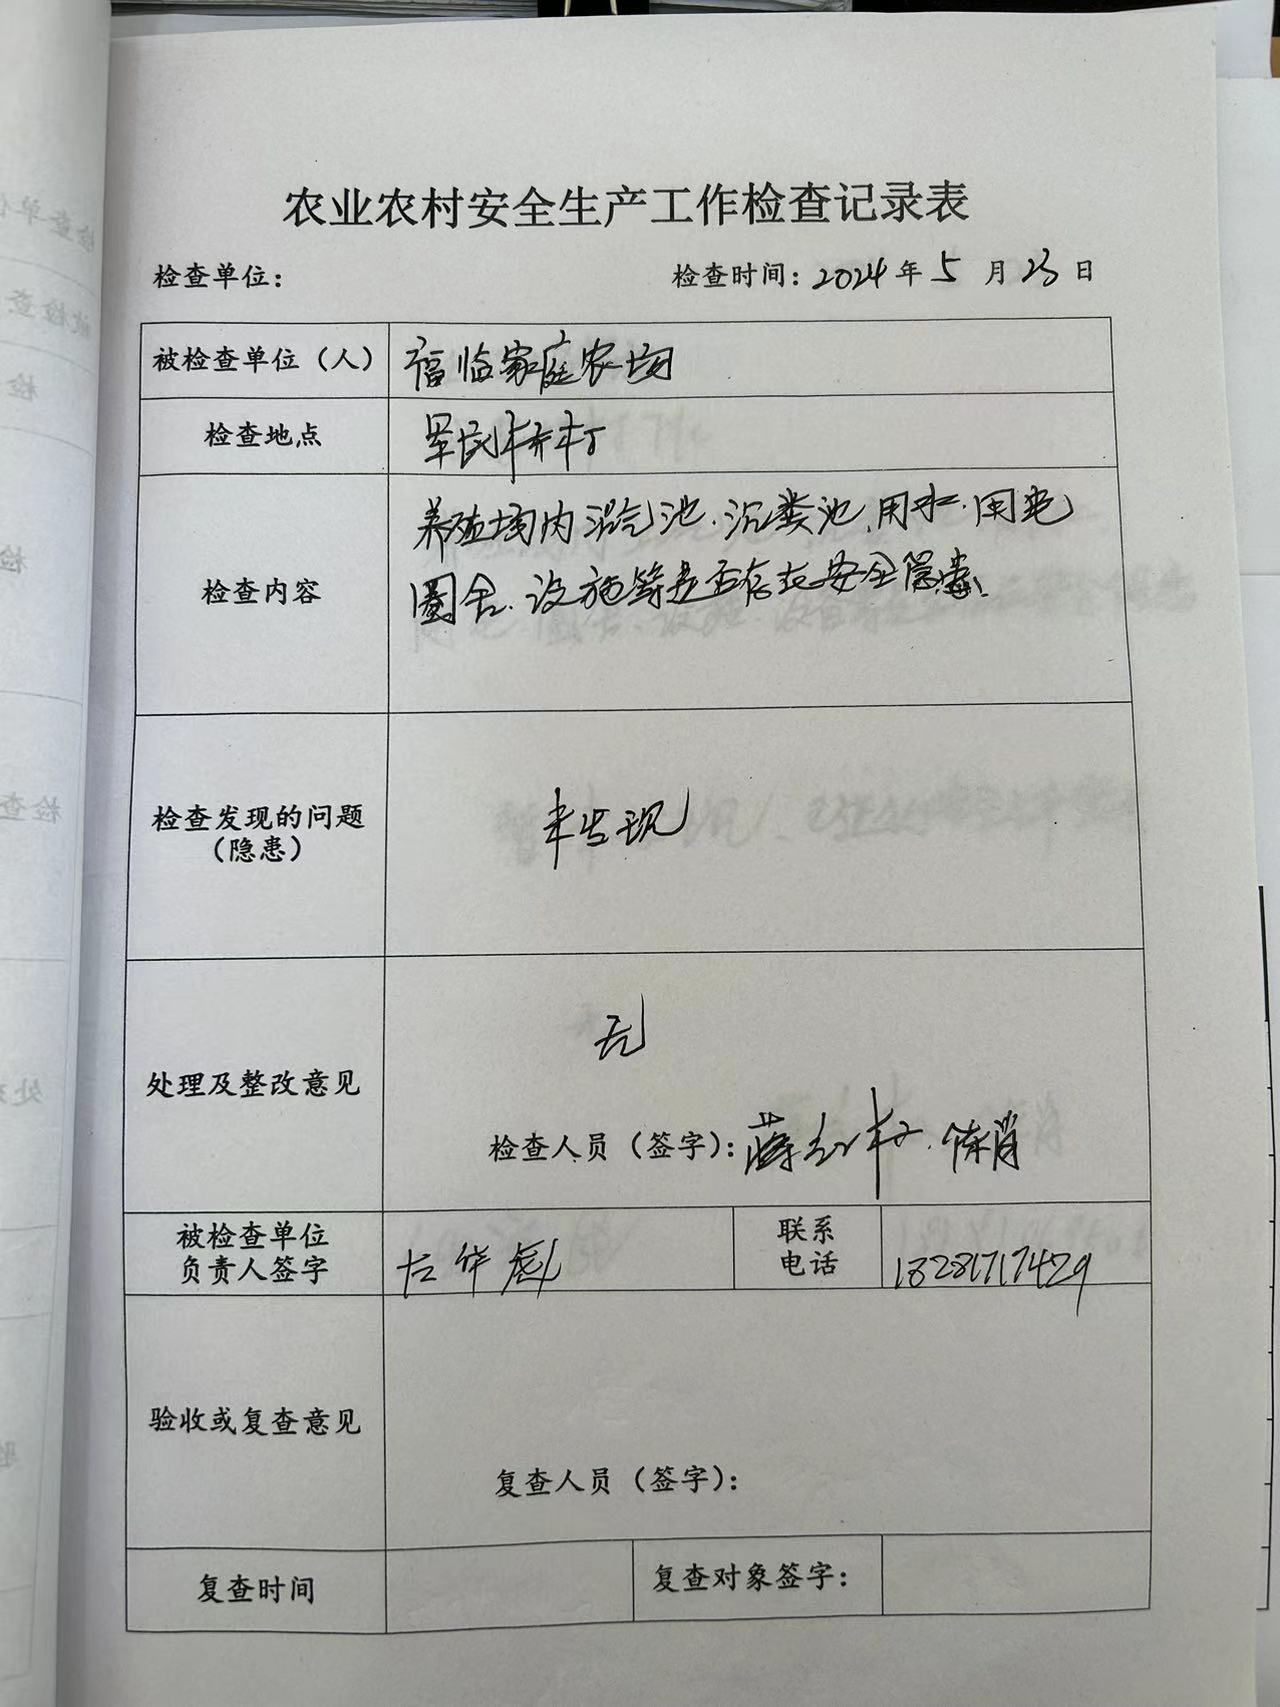 农业农村安全生产工作检查记录表
检查单位：
检查时间：2024年5月23日
被检查单位（人）
福临家庭农场
检查地点
村
检查内容
养殖场内沼气池、沉粪池、用水、用电
圈舍、设施等是否存在安全隐患、
检查发现的问题
（隐患）
未发现
处理及整改意见
无
检查人员（签字）：蒋
被检查单位
负责人签字
左华
联系
电话
18281717429
验收或复查意见
复查人员（签字）：
复查时间
复查对象签字：